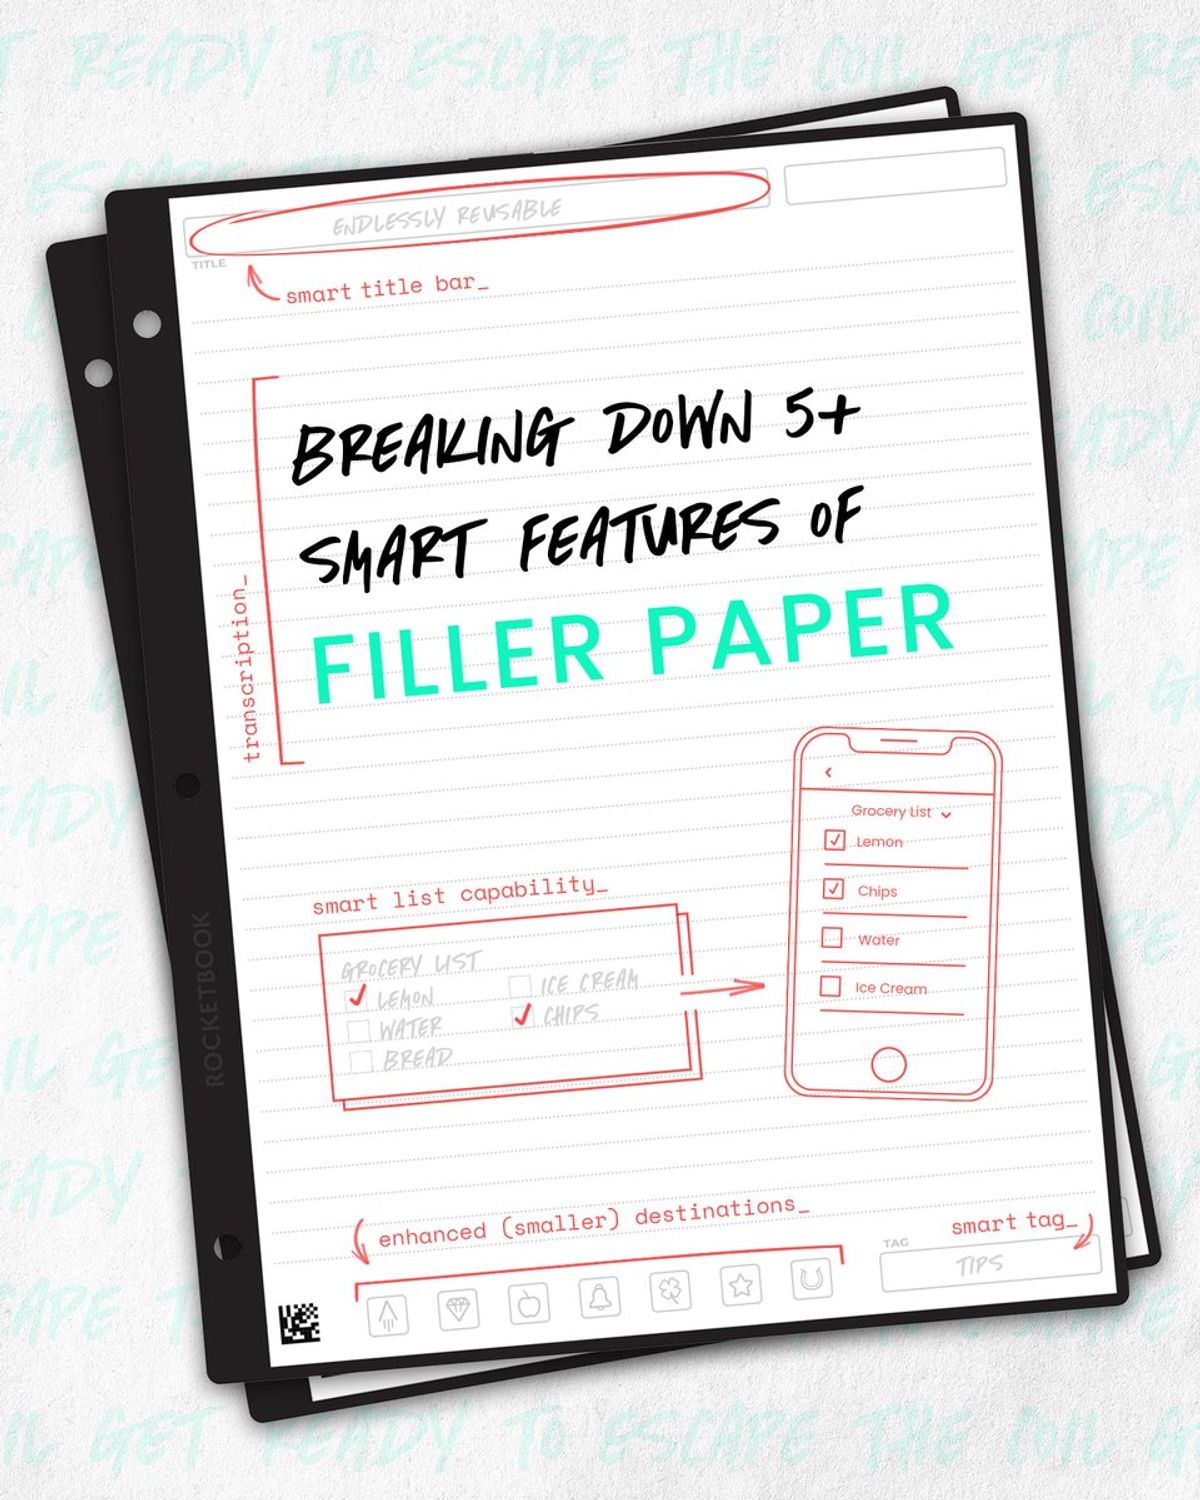 GET READY TO ESCAPE THE COIL GET RE
ENDLESSLY REUSABLE
TITLE
smart title bar_
BREAKING DOWN 5+
SMART FEATURES OF
FILLER PAPER
transcription_
Grocery List
Lemon
Chips
Water
Ice Cream
smart list capability_
GROCERY LIST
LEMON
WATER
BREAD
ICE CREAM
CHIPS
ROCKETBOOK
enhanced (smaller) destinations_
smart tag_
TAG
TIPS
COIL GET READY TO ESCAPE THE COIL G